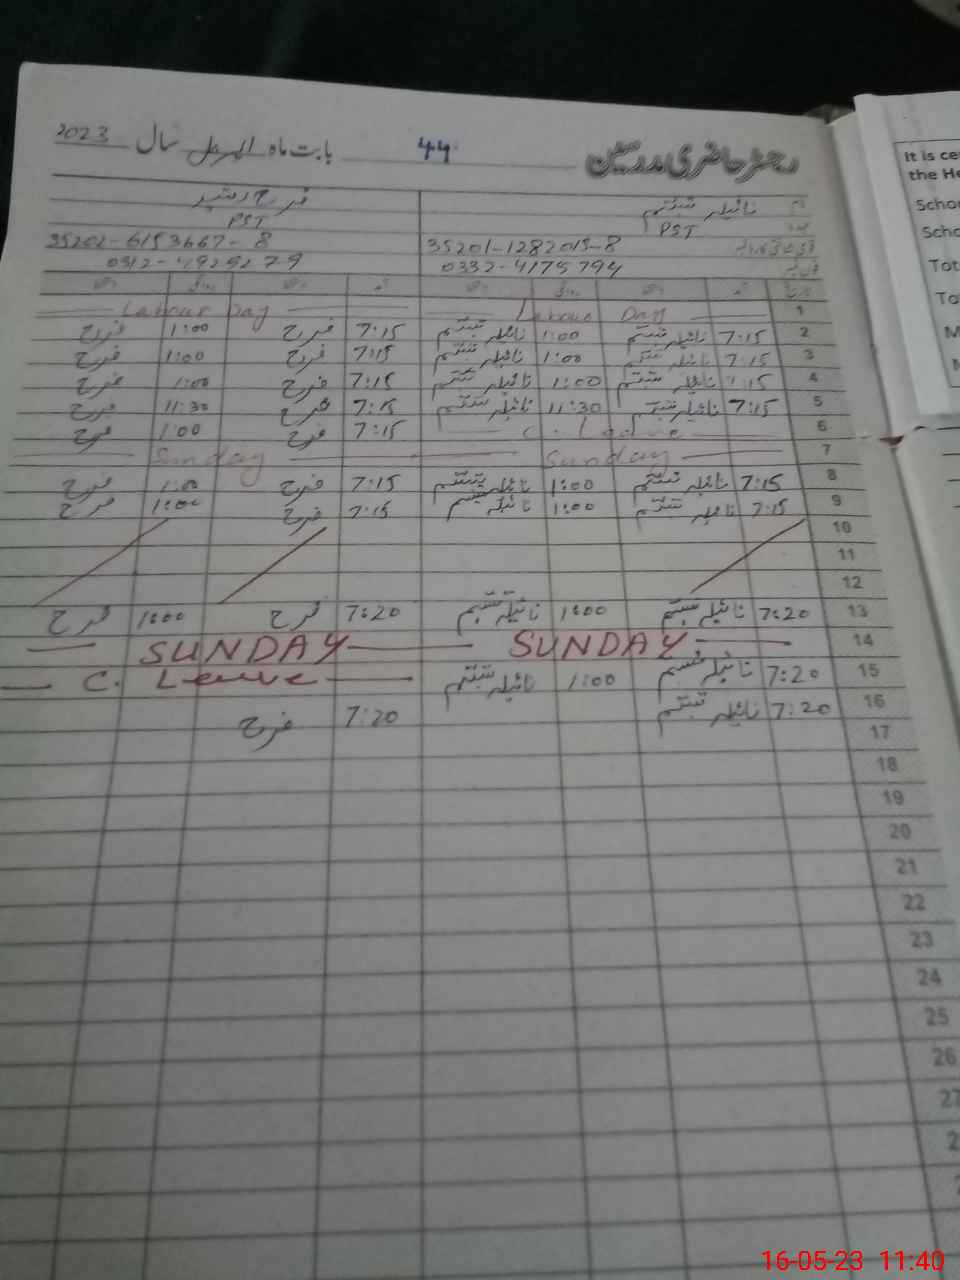 رجسٹر حاضری مدرسین 44 بابت ماہ اپریل سال 2023
نام نائیلہ تبسم فرح رشید
عہدہ PST PST
قومی شناختی کارڈ نمبر 35201-1282015-8 35202-6153667-8
فون نمبر 0332-4175794 0312-4929279
تاریخ آمد دستخط روانگی دستخط آمد دستخط روانگی دستخط
1 Labour Day Labour Day
2 7:15 نائیلہ تبسم 1:00 نائیلہ تبسم 7:15 فرح 1:00 فرح
3 7:15 نائیلہ تبسم 1:00 نائیلہ تبسم 7:15 فرح 1:00 فرح
4 7:15 نائیلہ تبسم 1:00 نائیلہ تبسم 7:15 فرح 1:00 فرح
5 7:15 نائیلہ تبسم 11:30 نائیلہ تبسم 7:15 فرح 11:30 فرح
6 C. Leave 7:15 فرح 1:00 فرح
7 Sunday Sunday
8 7:15 نائیلہ تبسم 1:00 نائیلہ تبسم 7:15 فرح 1:00 فرح
9 7:15 نائیلہ تبسم 1:00 نائیلہ تبسم 7:15 فرح 1:00 فرح
10
11
12
13 7:20 نائیلہ تبسم 1:00 نائیلہ تبسم 7:20 فرح 1:00 فرح
14 SUNDAY SUNDAY
15 7:20 نائیلہ تبسم 1:00 نائیلہ تبسم C. Leave
16 7:20 نائیلہ تبسم 7:20 فرح
17
18
19
20
21
22
23
24
25
26
27
It is ce
the He
Schoo
Scho
Tot
To
M
16-05-23 11:40